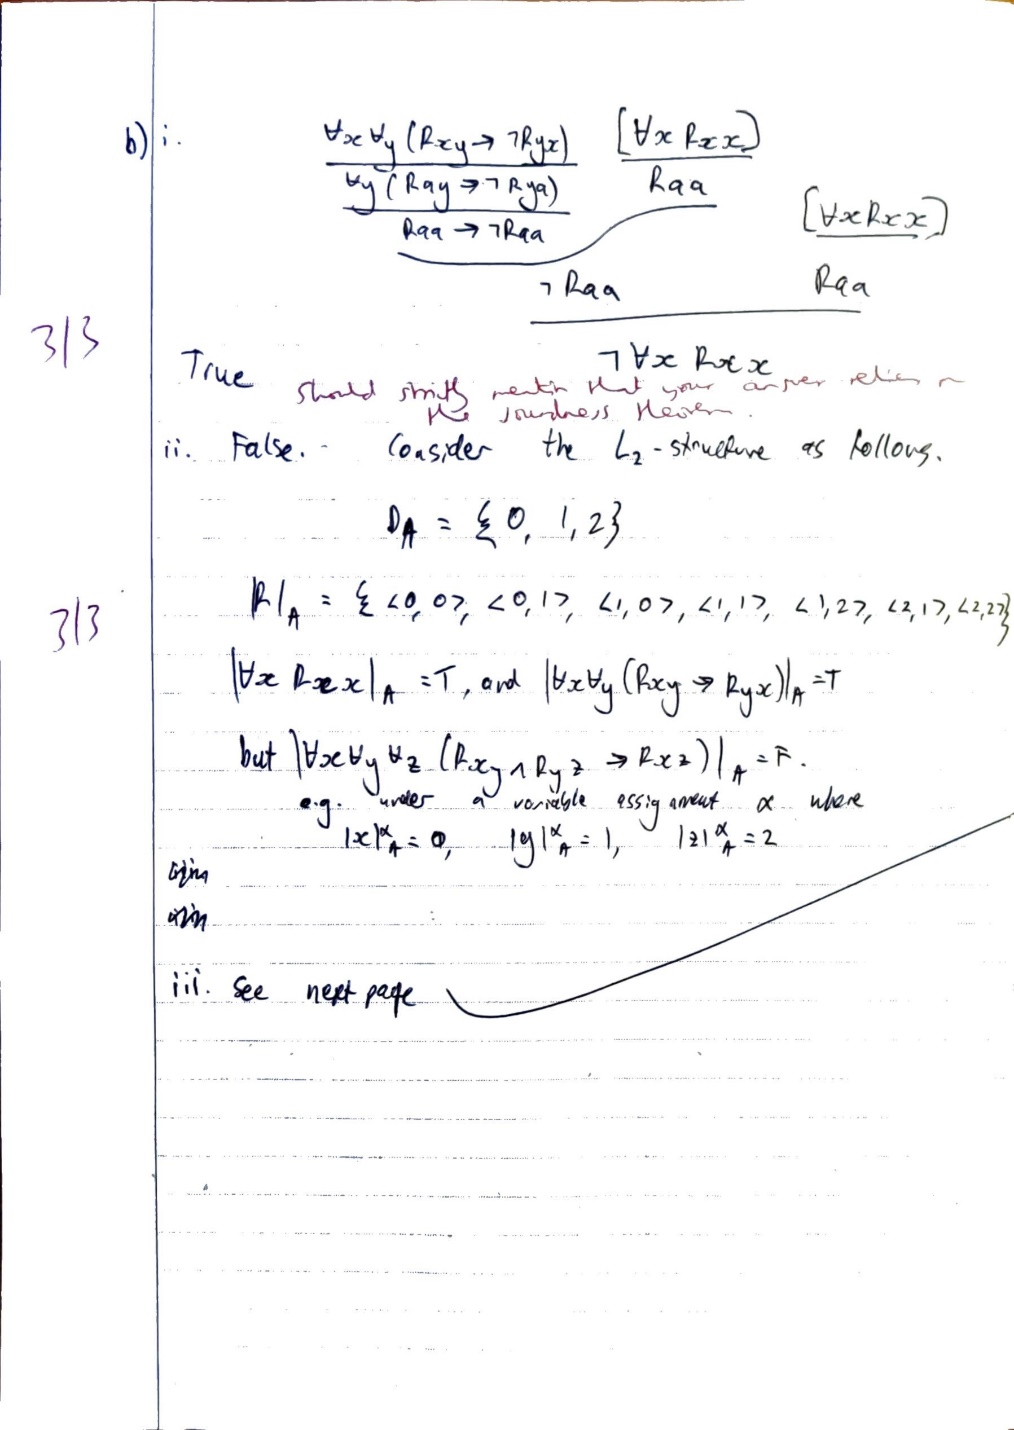 b) i.
∀x∀y (Rxy → ¬Ryx)   [∀x Rxx]
∀y (Ray → ¬Rya)   Raa
[∀x Rxx]
Raa → ¬Raa
¬Raa   Raa
3/3
¬∀x Rxx
True
should strictly mention that your answer relies on
the soundness theorem.
ii. False. - Consider the L₂-structure as follows.
D_A = {0, 1, 2}
3/3
|R|_A = {<0,0>, <0,1>, <1,0>, <1,1>, <1,2>, <2,1>, <2,2>}
|∀x Rxx|_A = T, and |∀x∀y (Rxy → Ryx)|_A = T
but |∀x∀y∀z (Rxy ∧ Ryz → Rxz)|_A = F.
e.g. under a variable assignment α where
|x|^α_A = 0, |y|^α_A = 1, |z|^α_A = 2
iii. See next page